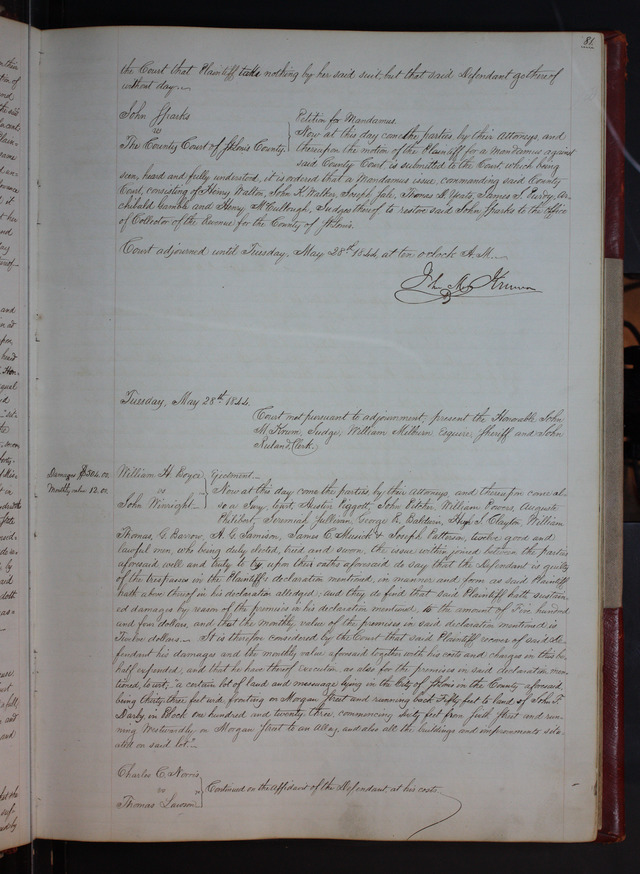 81.
the Court that Plaintiff take nothing by her said suit, but that said Defendant go thereof
without day.
John Sparks
vs
The County Court of St Louis County.
Petition for Mandamus.
Now at this day come the parties by their Attorneys, and
thereupon the motion of the Plaintiff for a Mandamus against
said County Court is submitted to the Court, which being
seen, heard and fully understood, it is ordered that a Mandamus issue, commanding said County
Court, consisting of Henry Walton, John K. Walker, Joseph Thomas James S.
chibald Gamble and Henry McCullough, Judges thereof to restore said John Sparks to the Office
of Collector of the Revenue for the County of St Louis.
Court adjourned until Tuesday, May 28th 1844 at ten o'clock A.M.
John M. Krum
Tuesday, May 28th 1844.
Court met pursuant to adjournment, present the Honorable John
M. Krum, Judge, William Milburn Esquire, Sheriff and John
Ruland, Clerk.
Damages $504.00.
Monthly value 12.00.
William H.
vs
John Winright
Ejectment.
Now at this day come the parties by their Attorneys, and thereupon came al-
so a Jury, towit, Austin Piggott, John William Powers, Auguste
Philibert, Jeremiah Sullivan, George R. Baldwin, S. Clayton, William
Thomas, G. Barrow, A. G. Jamison, James C. Musick & Joseph Patterson, twelve good and
lawful men, who being duly elected, tried and sworn, the issue within joined between the parties
aforesaid well and truly to try upon their oaths aforesaid do say that the Defendant is guilty
of the trespasses in the Plaintiff's declaration mentioned, in manner and form as said Plaintiff
hath above thereof in his declaration alledged; and they do find that said Plaintiff hath sustain-
ed damages by reason of the premises in his declaration mentioned, to the amount of Five hundred
and four dollars, and that the monthly value of the premises in said declaration mentioned is
Twelve dollars. It is therefore considered by the Court that said Plaintiff recover of said De-
fendant his damages and the monthly value aforesaid together with his costs and charges in this be-
half expended, and that he have thereof execution, as also for the premises in said declaration men-
tioned, to wit, "a certain lot of land and messuage lying in the City of St Louis in the County aforesaid
being thirty three feet wide fronting on Morgan Street and running back Fifty feet to land of John F.
Darby in Block one hundred and twenty three, commencing sixty feet from fifth Street and run-
ning Westwardly on Morgan Street to an Alley, and also all the buildings and improvements situ-
ated on said lot."
Charles C. Norris
vs
Thomas Lawson
Continued on the affidavit of the Defendant at his costs.